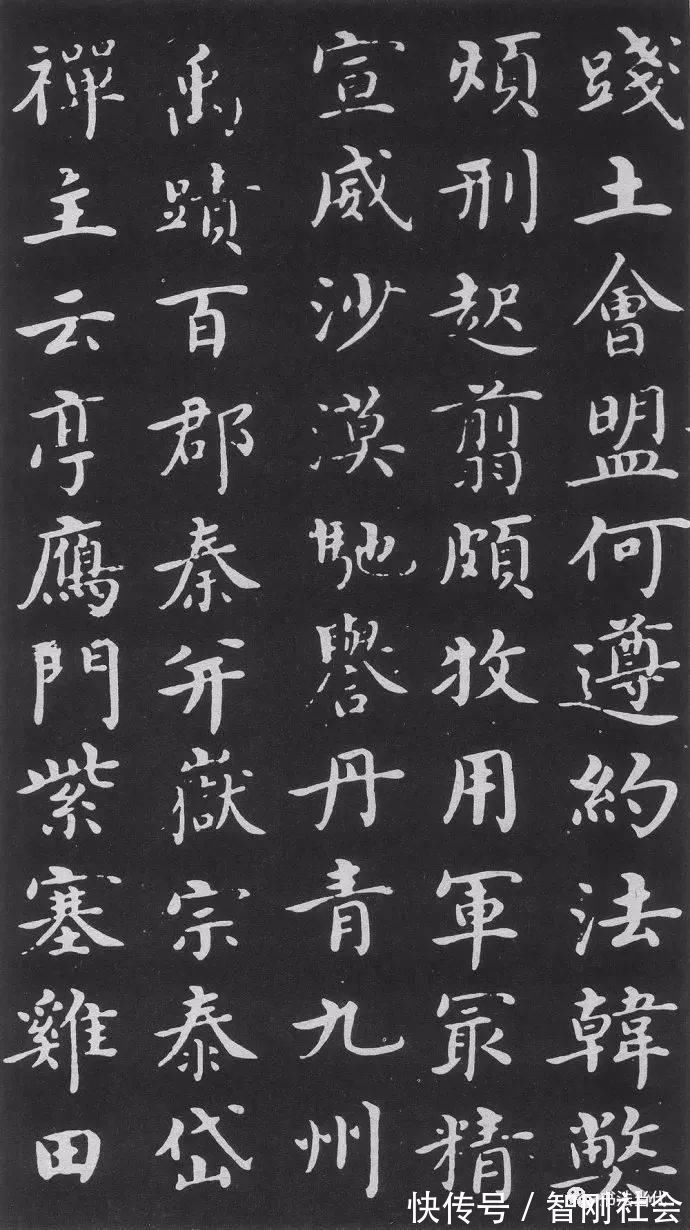 踐土會盟何遵約法韓弊
煩刑起翦頗牧用軍最精
宣威沙漠馳譽丹青九州
禹蹟百郡秦并嶽宗泰岱
禪主云亭鴈門紫塞雞田
书法当代
快传号 / 智刚社会